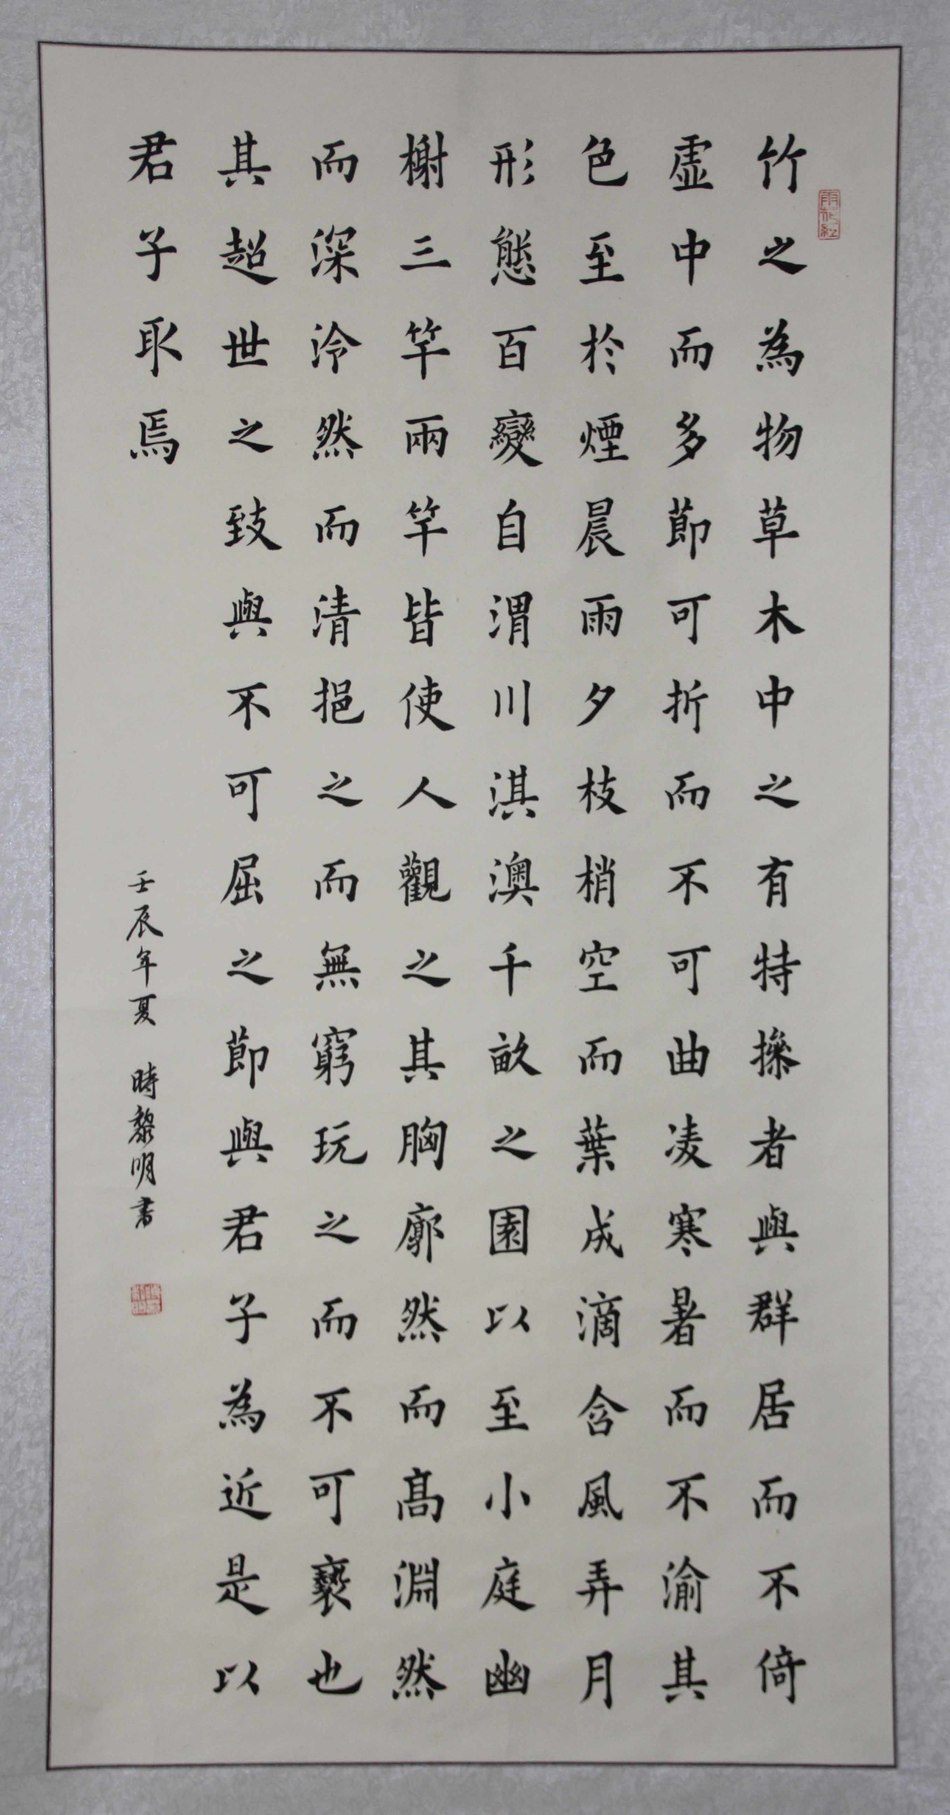 竹之為物草木中之有特操者與群居而不倚
虛中而多節可折而不可曲凌寒暑而不渝其
色至於煙晨雨夕枝梢空而葉成滴含風弄月
形態百變自渭川淇澳千畝之園以至小庭幽
榭三竿兩竿皆使人觀之其胸廓然而高淵然
而深泠然而清挹之而無窮玩之而不可褻也
其超世之致與不可屈之節與君子為近是以
君子取焉
壬辰年夏 時黎明書